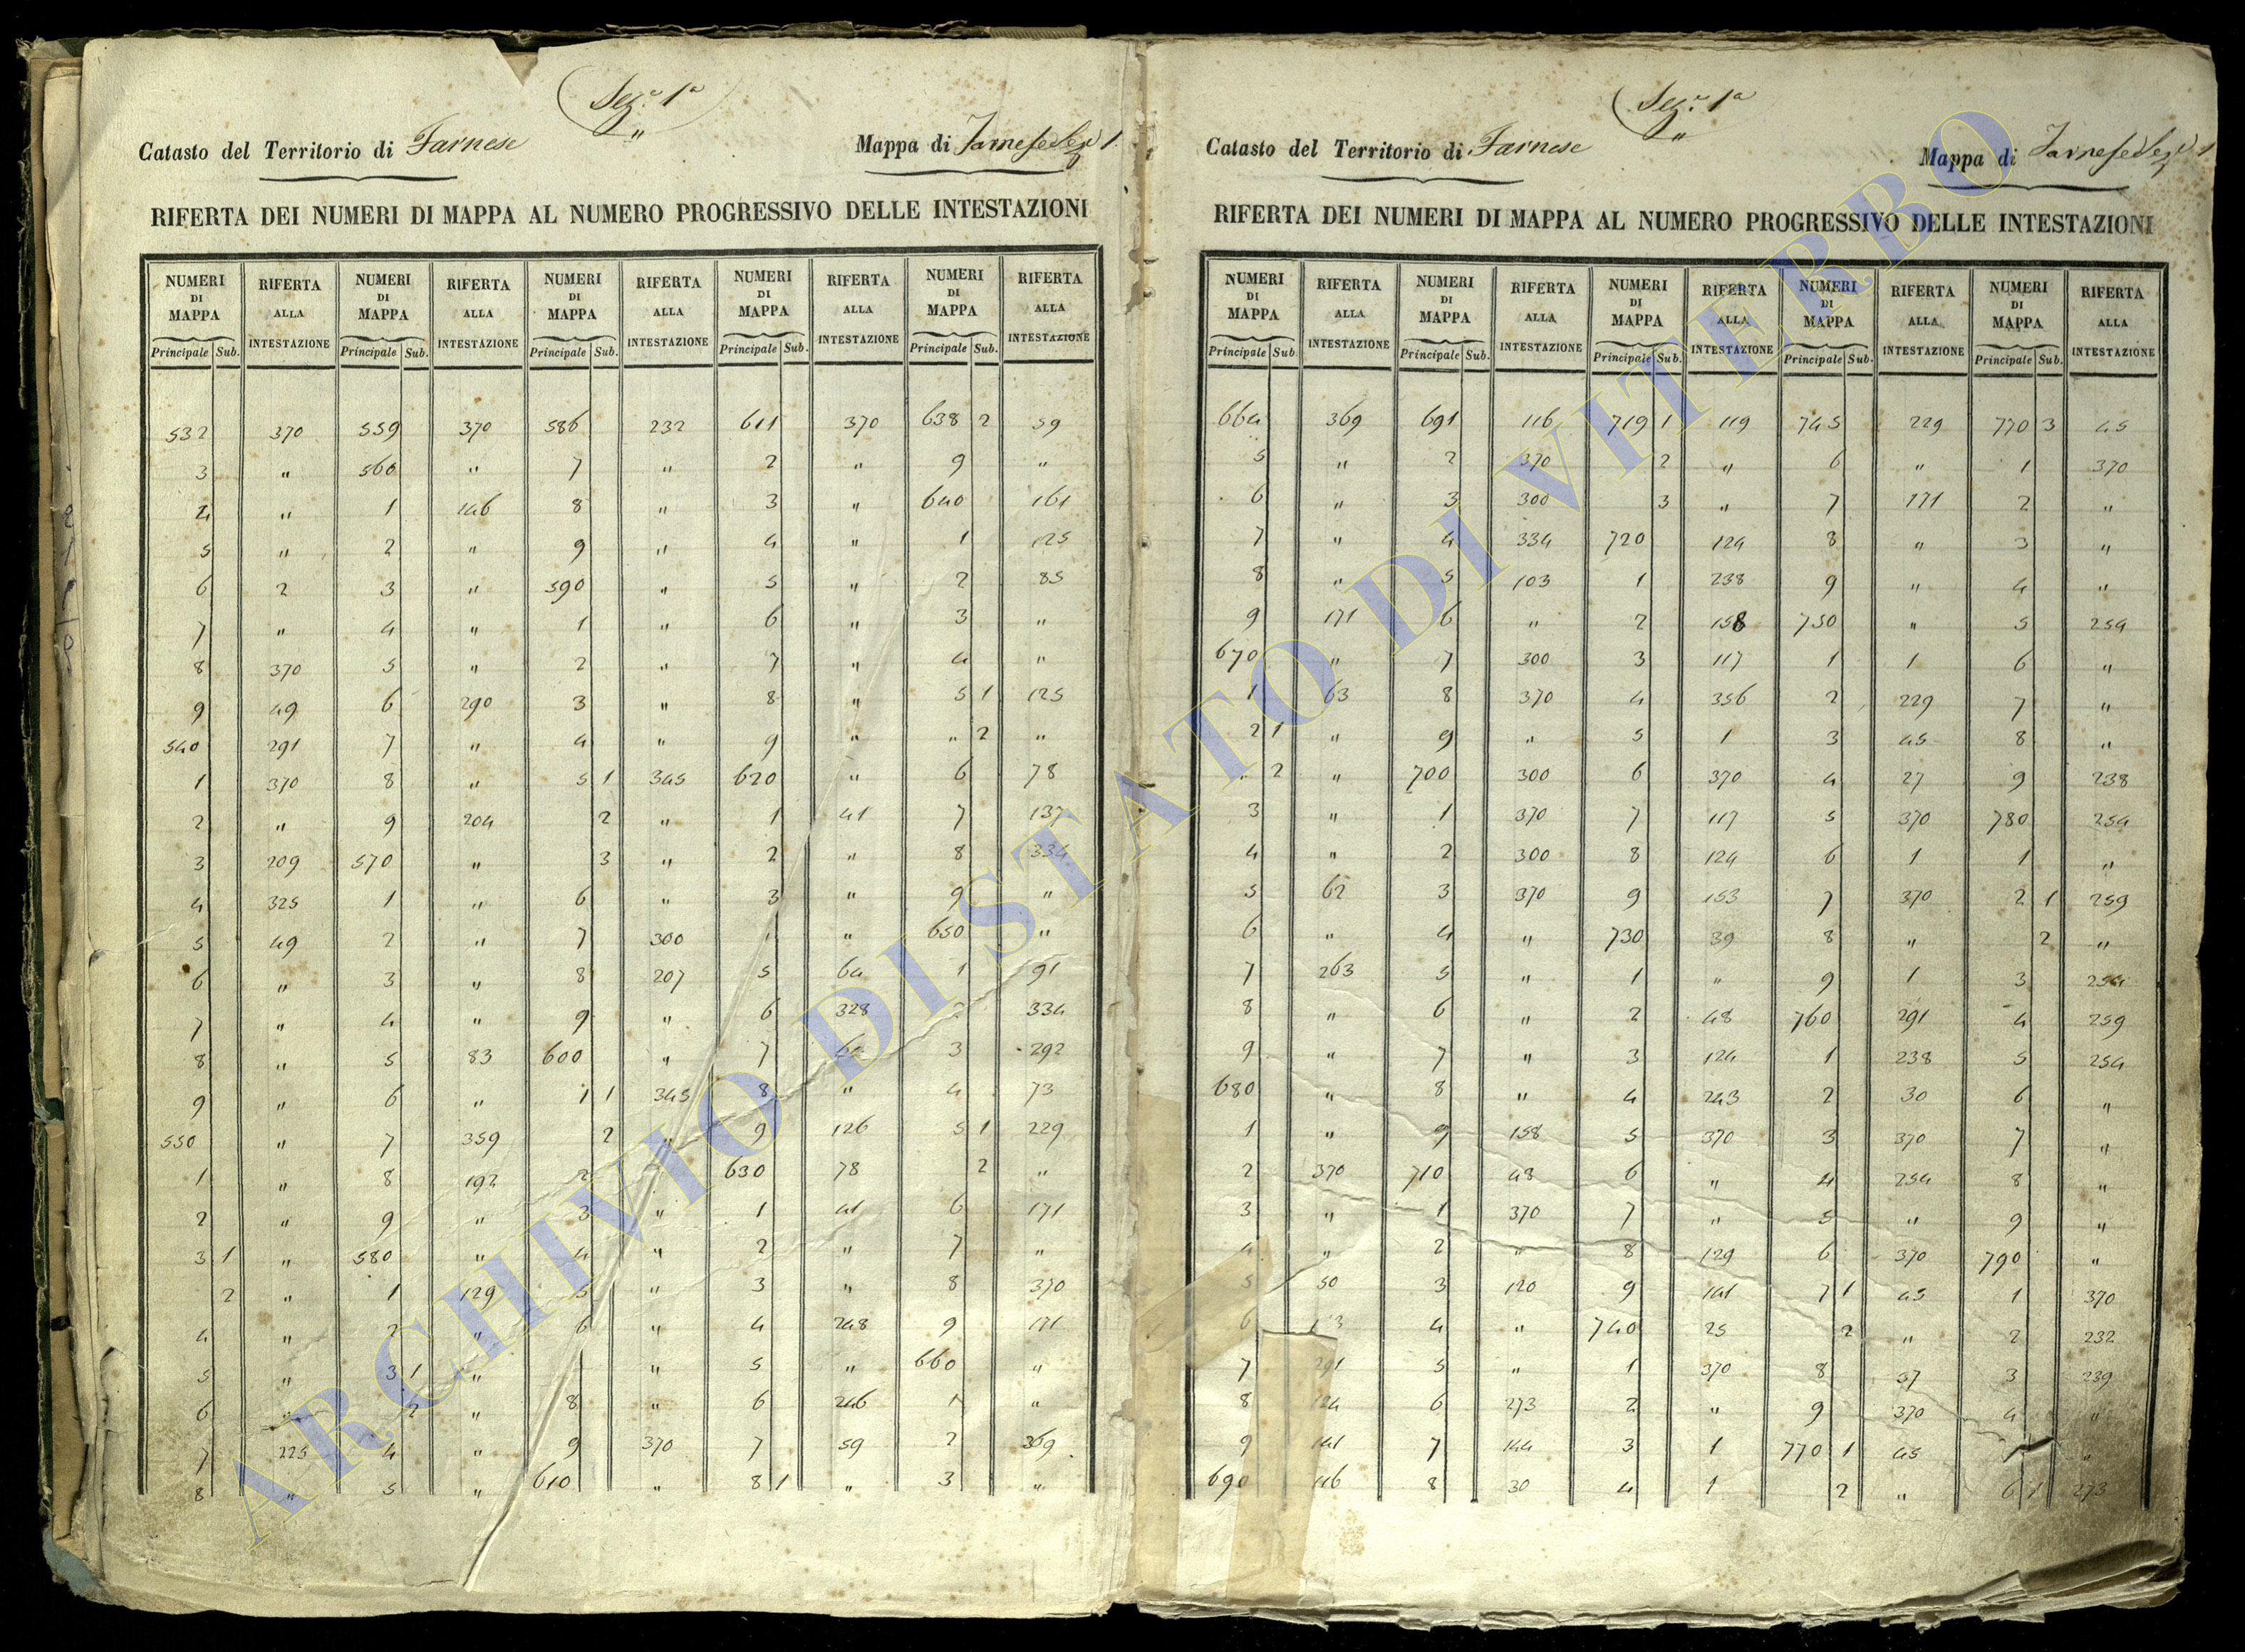 Sez.e 1a
"
Catasto del Territorio di Farnese
Mappa di Farnese Sez.e 1
RIFERTA DEI NUMERI DI MAPPA AL NUMERO PROGRESSIVO DELLE INTESTAZIONI
NUMERI DI MAPPA RIFERTA ALLA INTESTAZIONE NUMERI DI MAPPA RIFERTA ALLA INTESTAZIONE NUMERI DI MAPPA RIFERTA ALLA INTESTAZIONE NUMERI DI MAPPA RIFERTA ALLA INTESTAZIONE NUMERI DI MAPPA RIFERTA ALLA INTESTAZIONE
Principale Sub. Principale Sub. Principale Sub. Principale Sub. Principale Sub.
532 370 559 370 586 232 611 370 638 2 59
3 " 560 " 7 " 2 " 9 "
4 " 1 146 8 " 3 " 640 161
5 " 2 " 9 " 4 " 1 125
6 2 3 " 590 " 5 " 2 85
7 " 4 " 1 " 6 " 3 "
8 370 5 " 2 " 7 " 4 "
9 49 6 290 3 " 8 " 5 1 125
540 291 7 " 4 " 9 " " 2 "
1 370 8 " 5 1 345 620 " 6 78
2 " 9 204 2 " 1 41 7 137
3 209 570 " 3 " 2 " 8 334
4 325 1 " 6 " 3 " 9 "
5 49 2 " 7 300 " 650 "
6 " 3 " 8 207 5 64 1 91
7 " 4 " 9 " 6 328 2 334
8 " 5 83 600 " 7 3 292
9 " 6 " 1 1 345 8 " 4 73
550 " 7 359 2 " 9 126 5 1 229
1 " 8 192 2 " 630 78 2 "
2 " 9 " 3 " 1 41 6 171
3 1 " 580 " 4 " 2 " 7 "
2 " 1 129 5 " 3 " 8 370
4 " 2 " 6 " 4 248 9 171
5 " 3 1 " " 5 " 660 "
6 " 2 " 8 " 6 246 1 "
7 225 4 " 9 370 7 59 2 369
8 " 5 " 610 " 8 1 " 3 "
Sez.e 1a
"
Catasto del Territorio di Farnese
Mappa di Farnese Sez.e 1
RIFERTA DEI NUMERI DI MAPPA AL NUMERO PROGRESSIVO DELLE INTESTAZIONI
NUMERI DI MAPPA RIFERTA ALLA INTESTAZIONE NUMERI DI MAPPA RIFERTA ALLA INTESTAZIONE NUMERI DI MAPPA RIFERTA ALLA INTESTAZIONE NUMERI DI MAPPA RIFERTA ALLA INTESTAZIONE NUMERI DI MAPPA RIFERTA ALLA INTESTAZIONE
Principale Sub. Principale Sub. Principale Sub. Principale Sub. Principale Sub.
664 369 691 116 719 1 119 745 229 770 3 45
5 " 2 370 2 " 6 " 1 370
6 " 3 300 3 " 7 171 2 "
7 " 4 334 720 124 8 " 3 "
8 " 5 103 1 238 9 " 4 "
9 171 6 " 2 158 750 " 5 254
670 " 7 300 3 117 1 1 6 "
1 63 8 370 4 356 2 229 7 "
2 1 " 9 " 5 1 3 45 8 "
" 2 " 700 300 6 370 4 27 9 238
3 " 1 370 7 117 5 370 780 254
4 " 2 300 8 124 6 1 1 "
5 62 3 370 9 153 7 370 2 1 259
6 " 4 " 730 39 8 " 2 "
7 263 5 " 1 " 9 1 3 254
8 " 6 " 2 48 760 291 4 259
9 " 7 " 3 124 1 238 5 254
680 " 8 " 4 243 2 30 6 "
1 " 9 158 5 370 3 370 7 "
2 370 710 48 6 " 4 254 8 "
3 " 1 370 7 " 5 " 9 "
4 " 2 " 8 129 6 370 790 "
5 50 3 120 9 141 7 1 45 1 370
6 4 " 740 25 2 " 2 232
7 291 5 " 1 370 8 57 3 239
8 124 6 273 2 " 9 370 4 "
9 141 7 144 3 1 770 1 45 "
690 116 8 30 4 1 2 " 6 1 273
ARCHIVIO DI STATO DI VITERBO